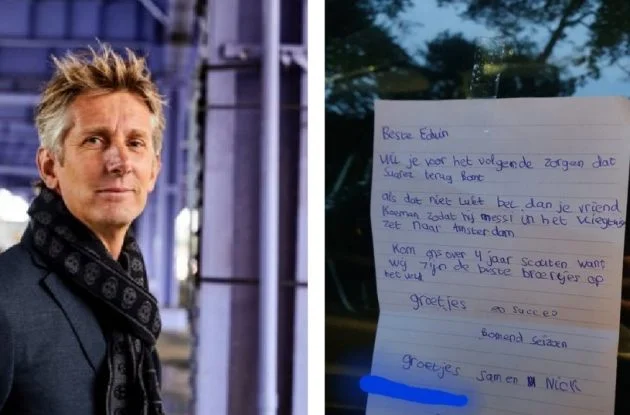 Beste Edwin
Wil je voor het volgende zorgen dat
Suarez terug komt
als dat niet lukt bel dan je vriend
Koeman zodat hij messi in het vliegtuig
zet naar Amsterdam
Kom ons over 4 jaar scouten want
wij zijn de beste broertjes op
het veld
groetjes en succes
komend seizoen
groetjes Sam en Nick